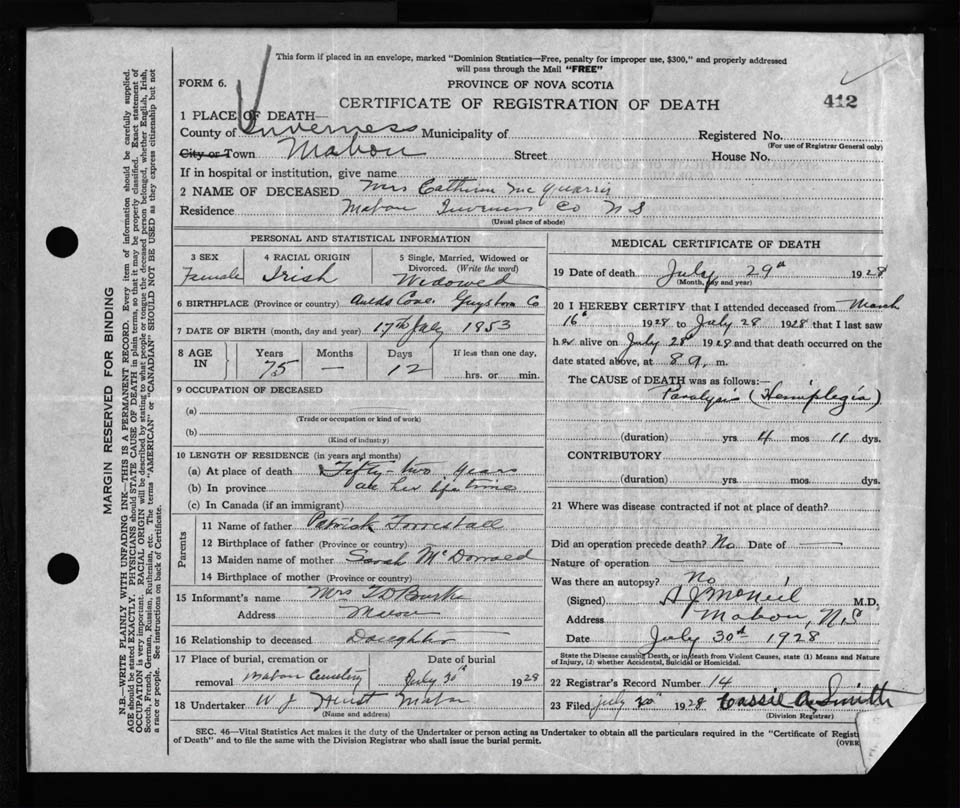 This form if placed in an envelope, marked "Dominion Statistics—Free, penalty for improper use, $300," and properly addressed
will pass through the Mail "FREE"
FORM 6.
PROVINCE OF NOVA SCOTIA
CERTIFICATE OF REGISTRATION OF DEATH
412
1 PLACE OF DEATH—
County of Inverness Municipality of Registered No.
(For use of Registrar General only)
City or Town Mabou Street House No.
If in hospital or institution, give name
2 NAME OF DECEASED Mrs Catherine McQuarrie
Residence Mabou Inverness Co N S
(Usual place of abode)
PERSONAL AND STATISTICAL INFORMATION
3 SEX
Female
4 RACIAL ORIGIN
Irish
5 Single, Married, Widowed or
Divorced. (Write the word)
Widowed
6 BIRTHPLACE (Province or country) Aulds Cove Guysboro Co
7 DATE OF BIRTH (month, day and year) 17th July 1853
8 AGE IN
Years 75
Months —
Days 12
If less than one day,
hrs. or min.
9 OCCUPATION OF DECEASED
(a)
(Trade or occupation or kind of work)
(b)
(Kind of industry)
10 LENGTH OF RESIDENCE (in years and months)
(a) At place of death Fifty-two years
(b) In province all her life time
(c) In Canada (if an immigrant)
Parents
11 Name of father Patrick Forrestall
12 Birthplace of father (Province or country)
13 Maiden name of mother Sarah McDonald
14 Birthplace of mother (Province or country)
15 Informant's name Mrs T D Burke
Address
16 Relationship to deceased Daughter
17 Place of burial, cremation or
removal Mabou Cemetery
Date of burial
July 30th 1928
18 Undertaker W J Mabou
(Name and address)
MEDICAL CERTIFICATE OF DEATH
19 Date of death July 29th 1928
(Month, day and year)
20 I HEREBY CERTIFY that I attended deceased from March
16th 1928 to July 28 1928 that I last saw
her alive on July 28th 1928 and that death occurred on the
date stated above, at 8 a. m.
The CAUSE of DEATH was as follows:—
Paralysis (Hemiplegia)
(duration) yrs 4 mos 11 dys.
CONTRIBUTORY
(duration) yrs. mos. dys.
21 Where was disease contracted if not at place of death?
Did an operation precede death? No Date of —
Nature of operation —
Was there an autopsy? No
(Signed) A J McNeil M.D,
Address Mabou, N.S
Date July 30th 1928
State the Disease causing Death, or in death from Violent Causes, state (1) Means and Nature
of Injury, (2) whether Accidental, Suicidal or Homicidal.
22 Registrar's Record Number 14
23 Filed July 30 1928 Cassie A Smith
(Division Registrar)
SEC. 46—Vital Statistics Act makes it the duty of the Undertaker or person acting as Undertaker to obtain all the particulars required in the "Certificate of
of Death" and to file the same with the Division Registrar who shall issue the burial permit.
(OVER
MARGIN RESERVED FOR BINDING
N.B.—WRITE PLAINLY WITH UNFADING INK—THIS IS A PERMANENT RECORD. Every item of information should be carefully supplied.
AGE should be stated EXACTLY. PHYSICIANS should STATE CAUSE OF DEATH in plain terms, so that it may be properly classified. Exact statement of
OCCUPATION is very important. RACIAL ORIGIN will be described by stating to what people or tongue the deceased person belonged, whether English, Irish,
Scotch, French, German, Russian, Ruthenian, etc. The terms "AMERICAN" or "CANADIAN" SHOULD NOT BE USED as they express citizenship but not
a race or people. See instructions on back of Certificate.